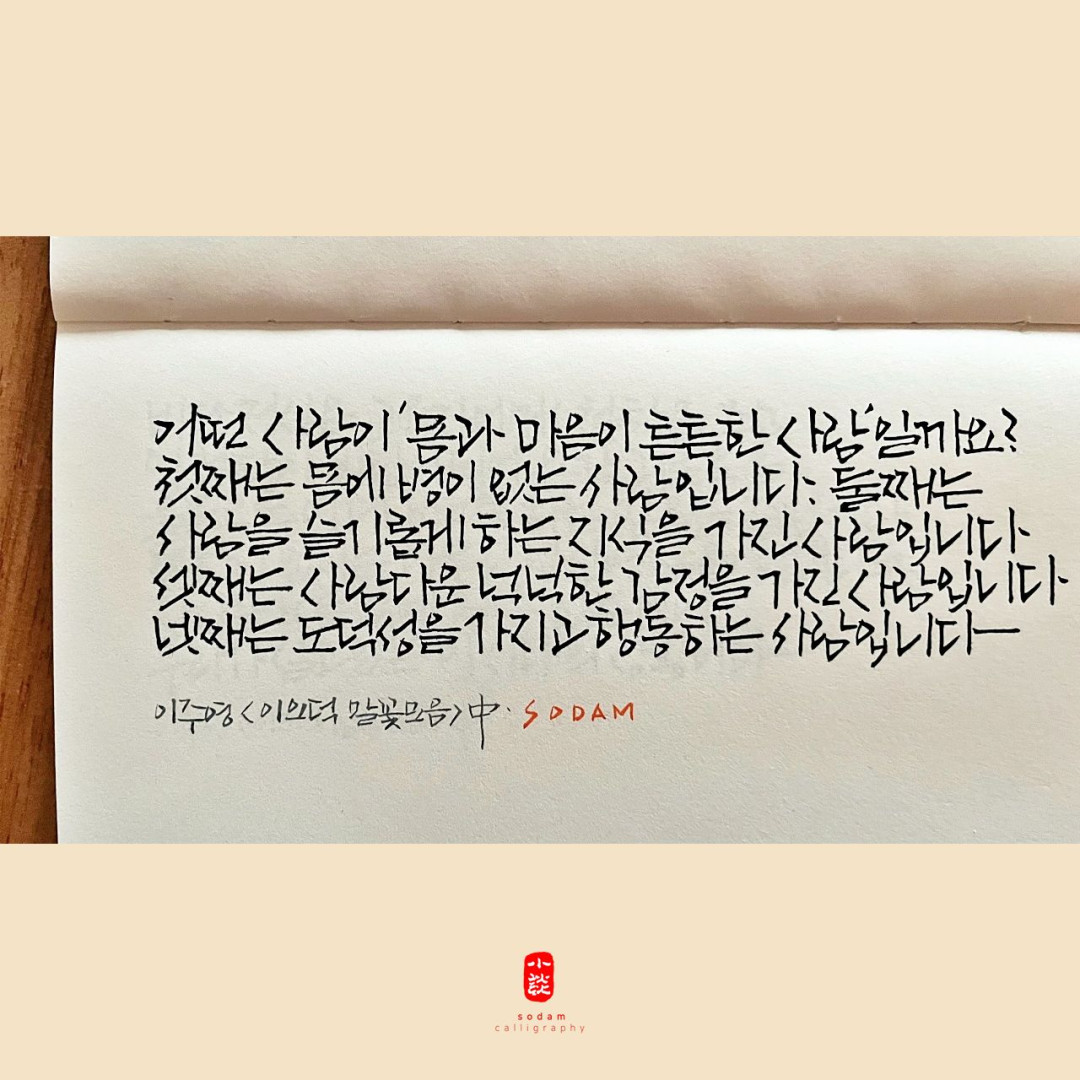 어떤 사람이 '몸과 마음이 튼튼한 사람'일까요?
첫째는 몸에 병이 없는 사람입니다. 둘째는
사람을 슬기롭게 하는 지식을 가진 사람입니다.
셋째는 사람다운 넉넉한 감정을 가진 사람입니다.
넷째는 도덕성을 가지고 행동하는 사람입니다—
이주영 <이오덕 말꽃모음> 中. SODAM
小談
sodam
calligraphy